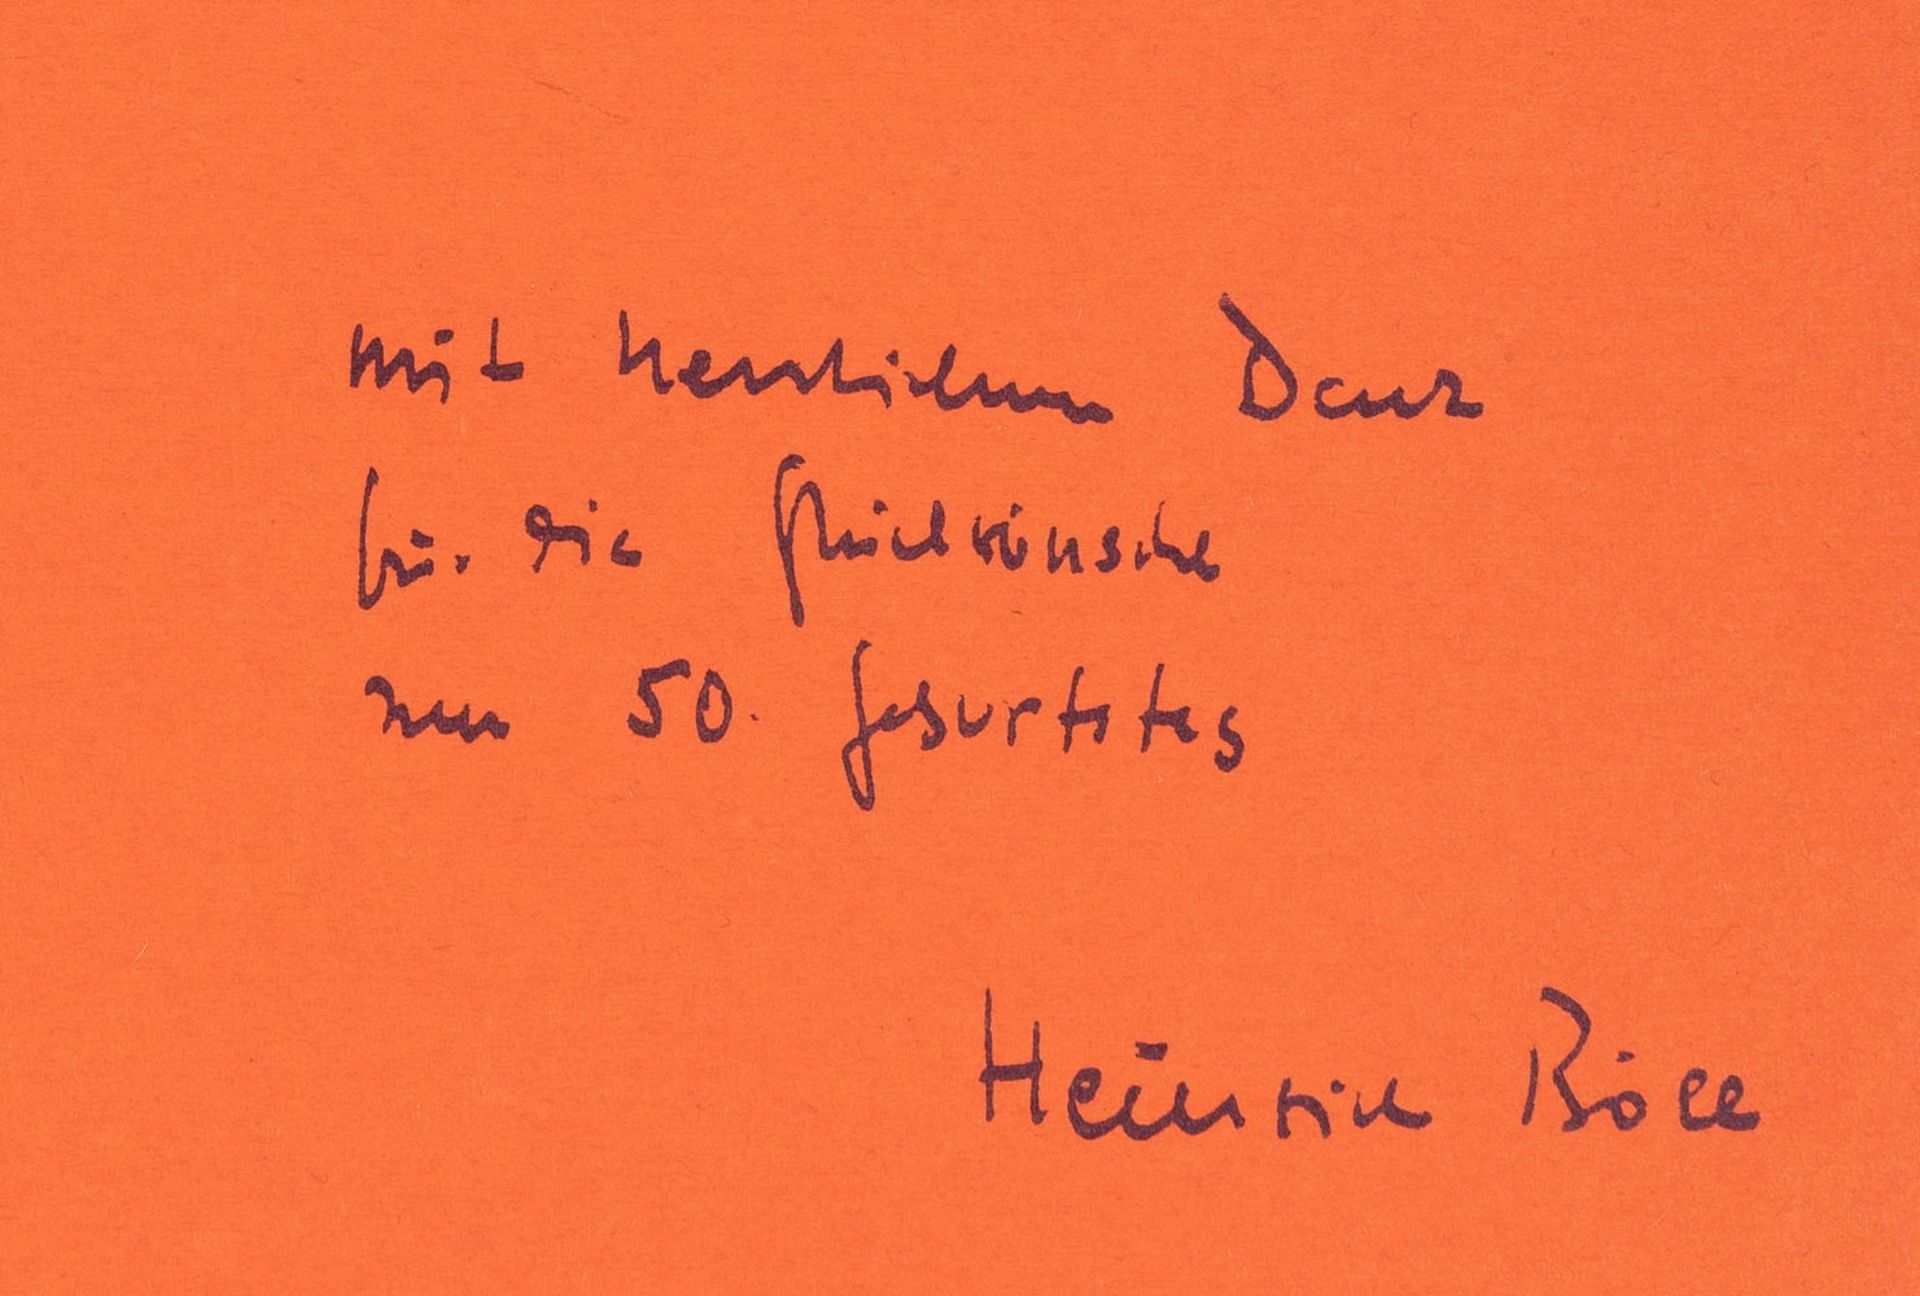 mit herzlichem Dank
für die Glückwünsche
zum 50. Geburtstag
Heinrich Böll